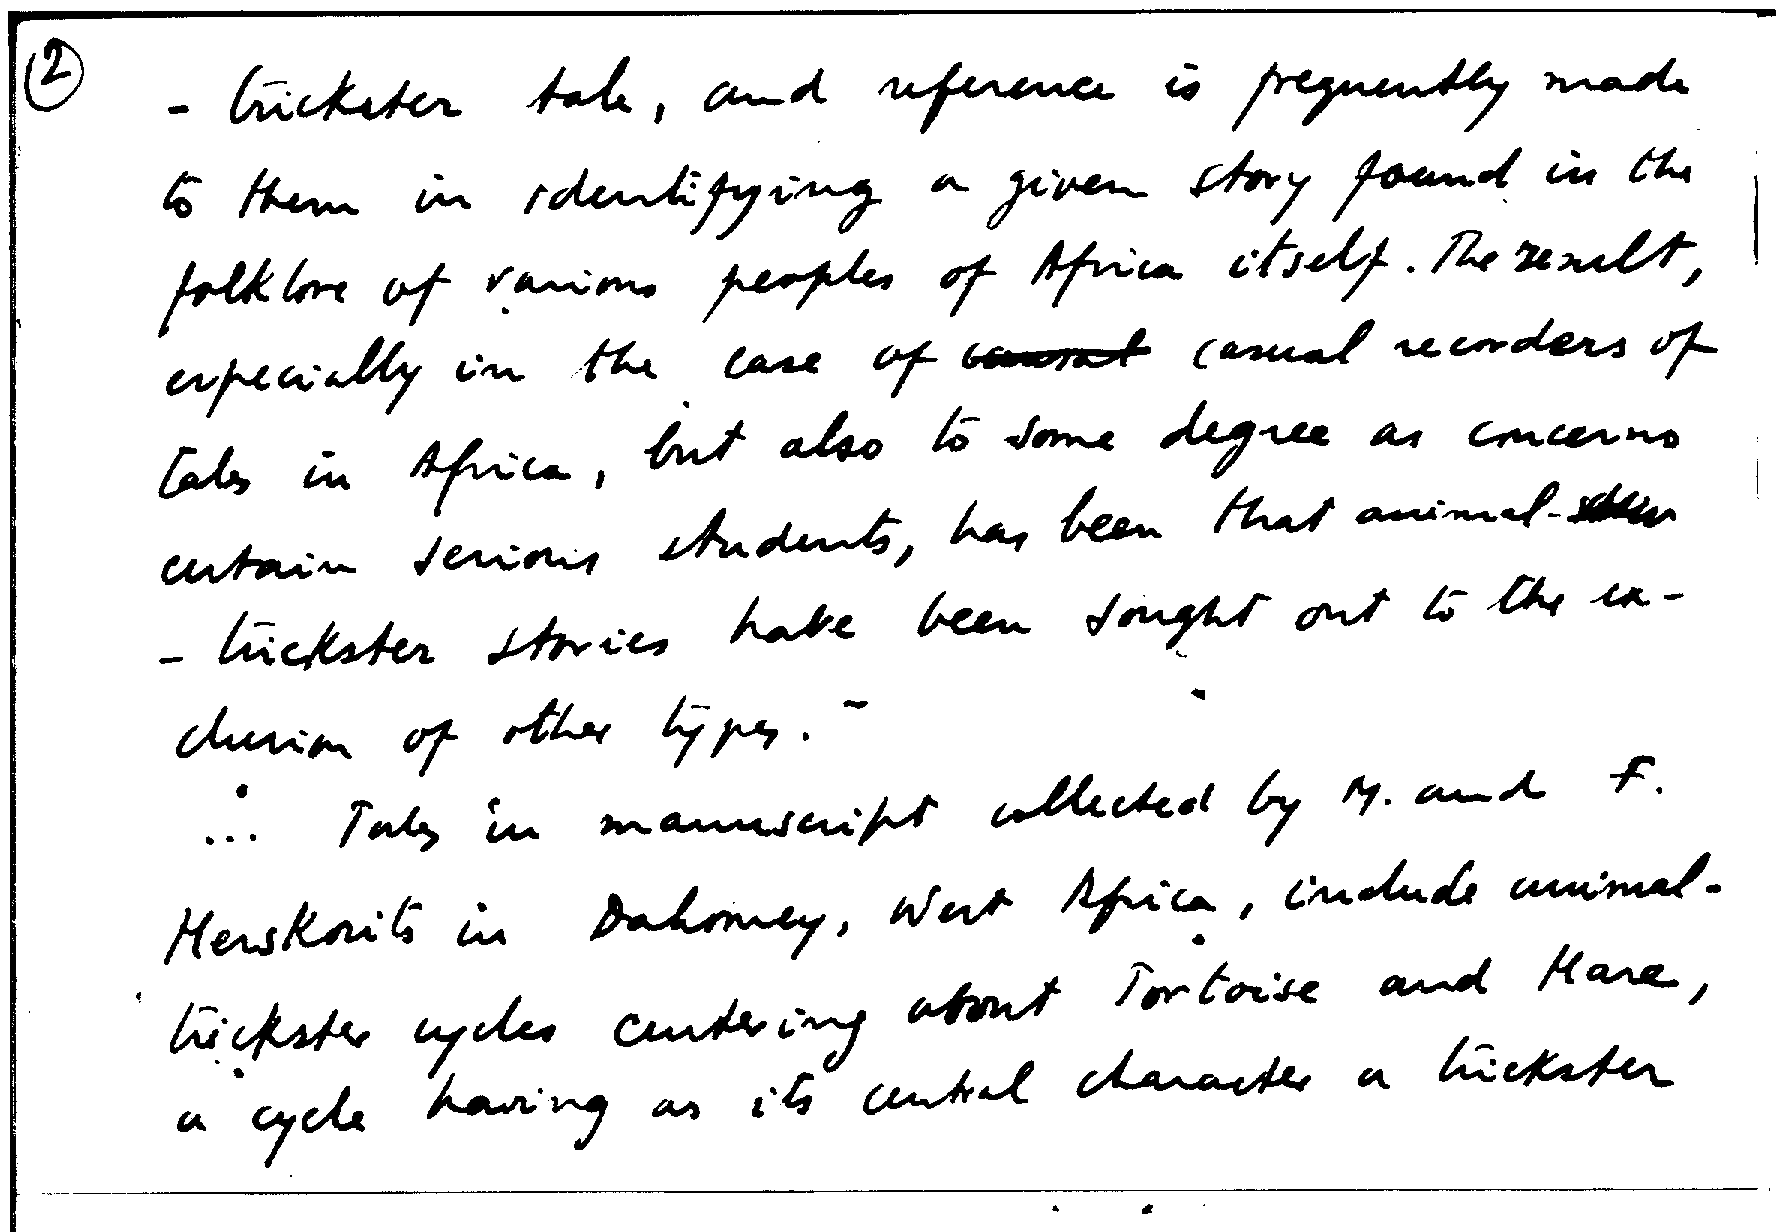 ②
- trickster tale, and reference is frequently made
to them in identifying a given story found in the
folklore of various peoples of Africa itself. The result,
especially in the case of casual recorders of
tales in Africa, but also to some degree as concerns
certain serious students, has been that animal-
- trickster stories have been sought out to the ex-
clusion of other types.-
... Tales in manuscript collected by M. and F.
Herskovits in Dahomey, West Africa, include animal-
trickster cycles centering about Tortoise and Hare,
a cycle having as its central character a trickster